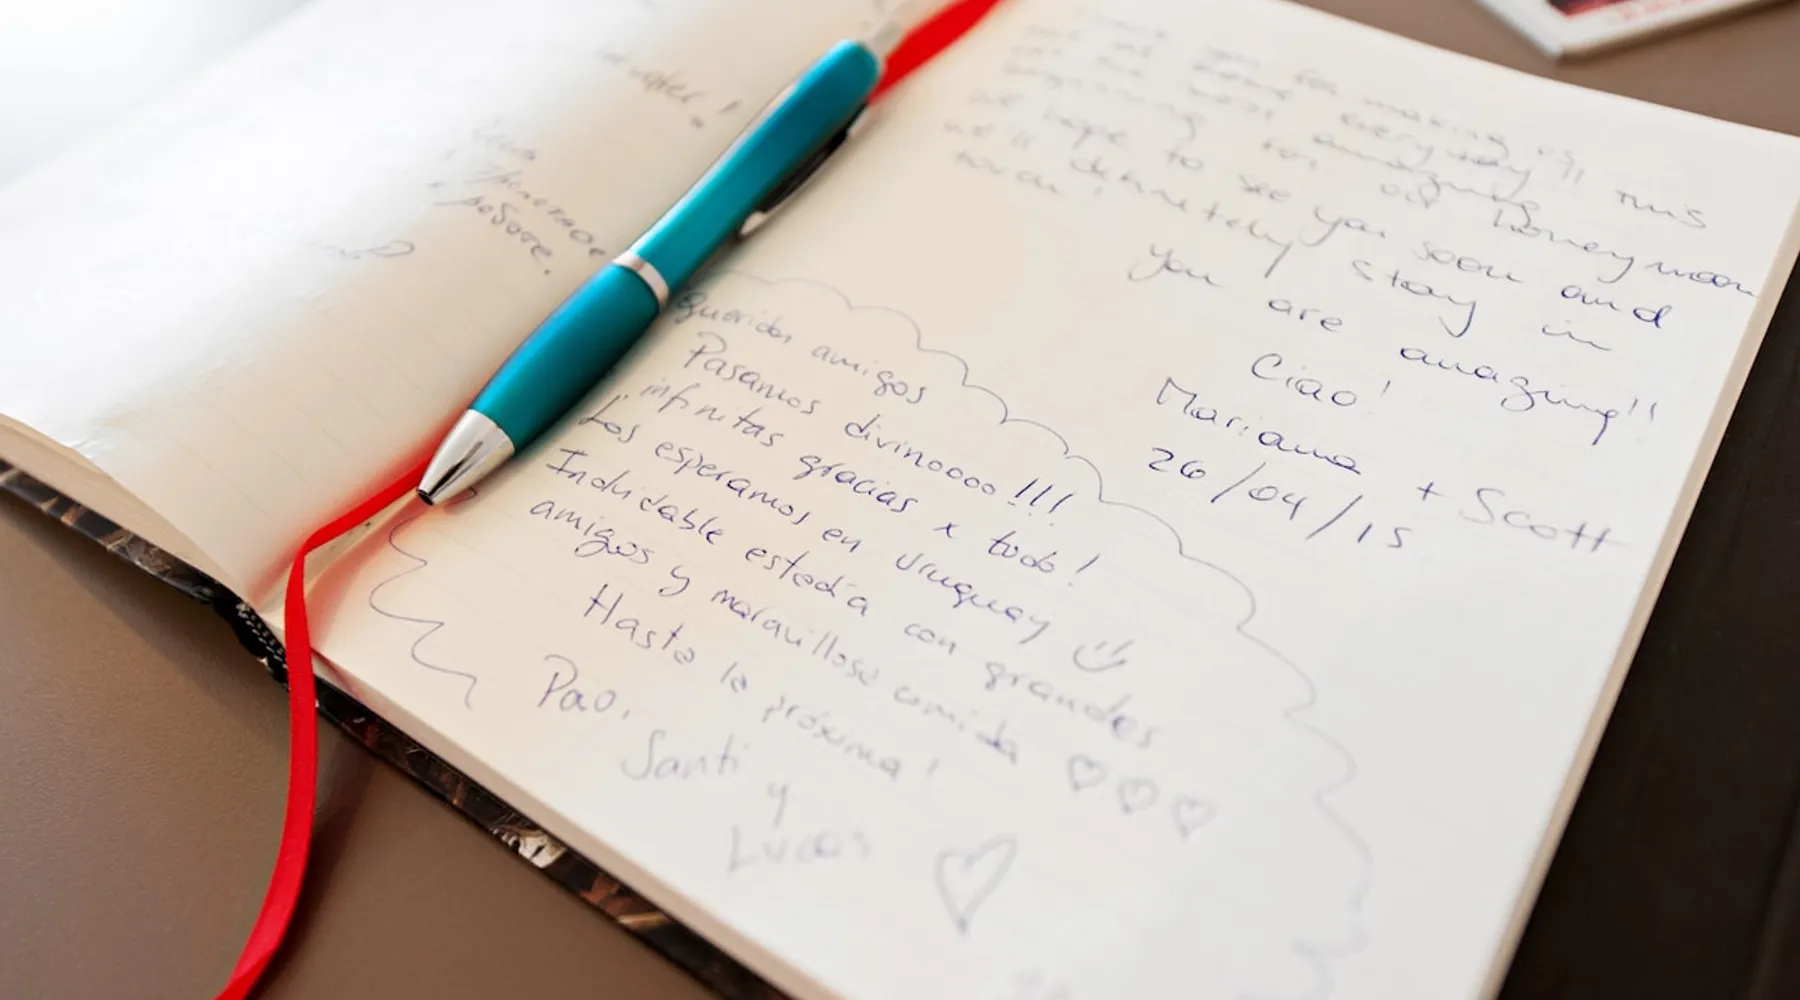 you for making
at home everyday!! This
most amazing
beginning for our honeymoon
we hope to see you soon and
we'll definitely stay in
touch! you are amazing!!
Ciao!
Mariana + Scott
26/04/15
Queridos amigos
Pasamos divinoooo!!!
infinitas gracias x todo!
Los esperamos en Uruguay
Indudable estadía con grandes
amigos y maravillosa comida
Hasta la próxima!
Pao,
Santi
y
Lucas